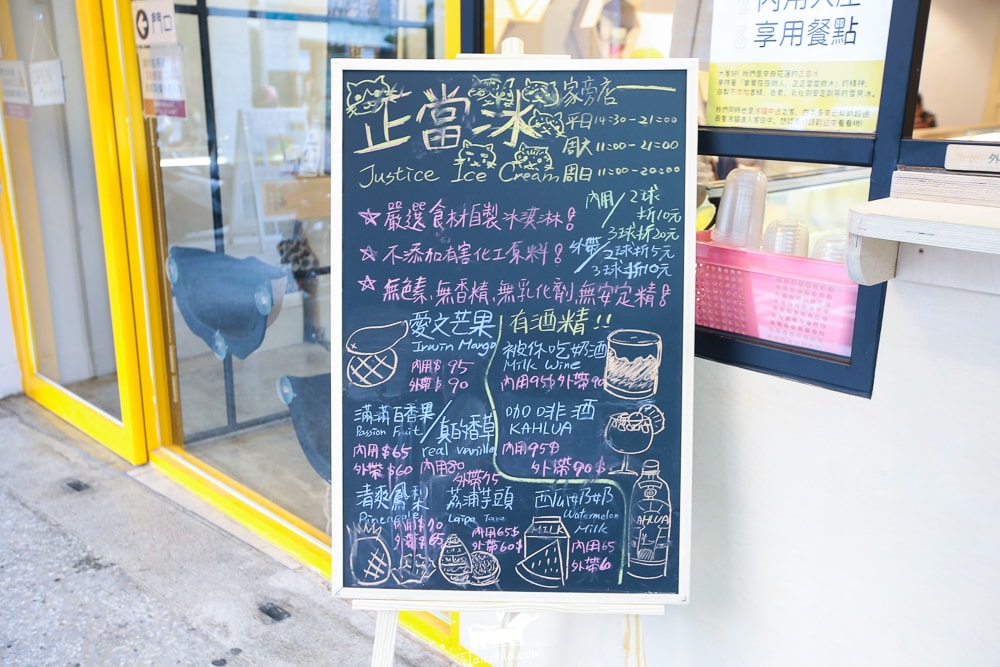 門口
內用入座
享用餐點
正當冰 家旁店
平日14:30-21:00
周六11:00-21:00
Justice Ice Cream 周日11:00-20:00
內用/2球
折10元
3球折20元
外帶/2球折5元
3球折10元
☆嚴選食材自製冰淇淋!
☆不添加有害化工原料!
☆無色素、無香精、無乳化劑、無安定精!
愛文芒果
Irwin Mango
內用$95
外帶$90
有酒精!!
被你吃奶酒
Milk Wine
內用95$外帶90
滿滿百香果
Passion Fruit
內用$65
外帶$60
真的香草
real vanilla
內用80
外帶75
咖啡酒
KAHLUA
內用95$
外帶90$
清爽鳳梨
Pineapple
內用$70
外帶$65
荔浦芋頭
Laipa Taro
內用65$
外帶60$
西瓜ㄋㄟㄋㄟ
Watermelon
Milk
內用65
外帶60
MILK
KAHLUA